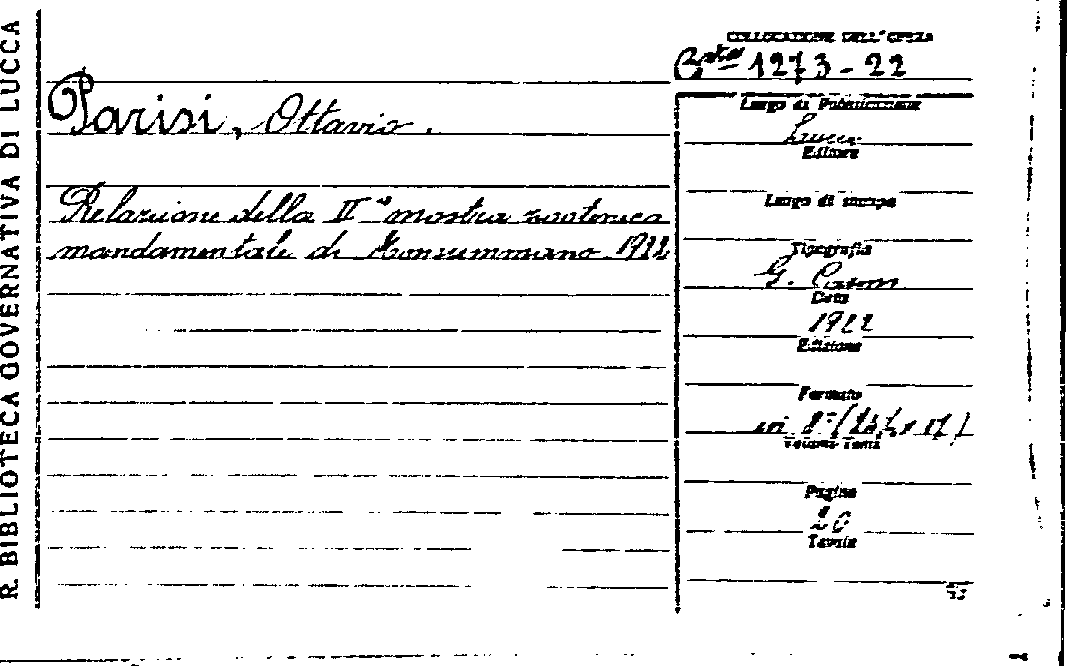 R. BIBLIOTECA GOVERNATIVA DI LUCCA
COLLOCAZIONE DELL'OPERA
Bta 1273-22
Parisi, Ottavio.
Relazione della IIa mostra zootecnica
mandamentale di Monsummano 1922
Luogo di Pubblicazione
Lucca
Editore
Luogo di stampa
Tipografia
G.
Data
1922
Edizione
Formato
in 8°
Volumi-Tomi
Pagine
20
Tavole